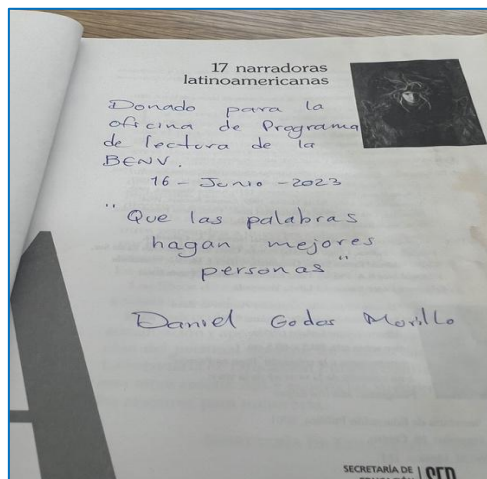 17 narradoras
latinoamericanas
Donado para la
oficina de Programa
de lectura de la
BENV.
16 - Junio - 2023
"Que las palabras
hagan mejores
personas"
Daniel Godas Morillo
SECRETARÍA DE
SEP